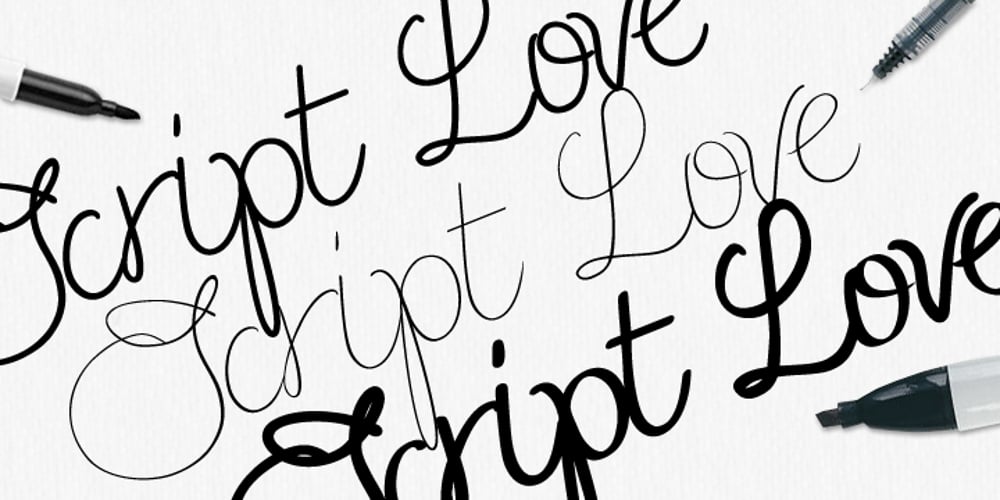 Script Love
Script Love
Script Love